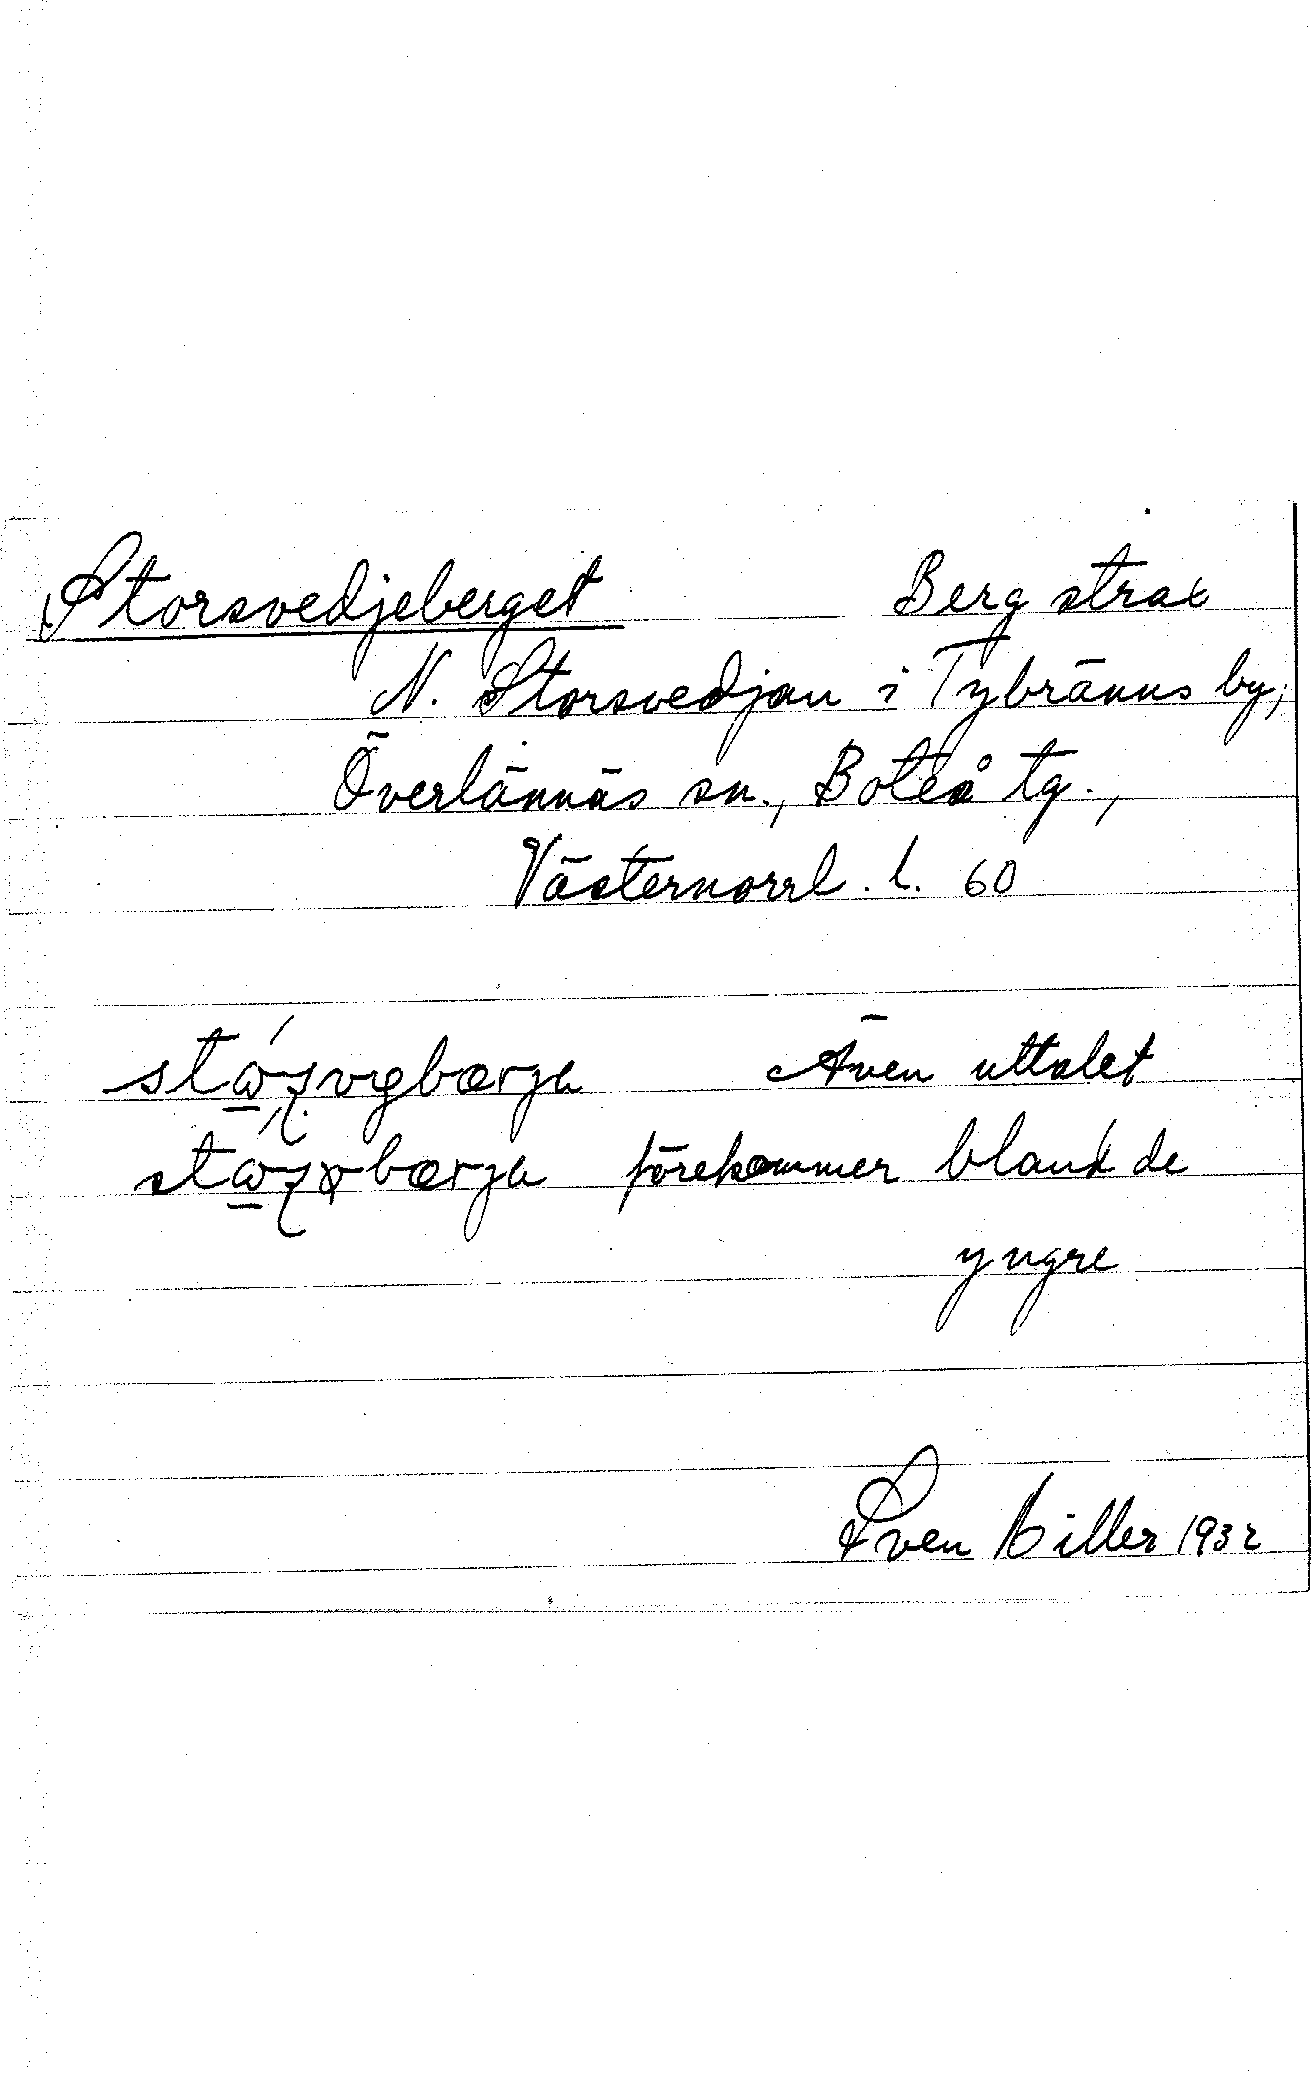 Storsvedjeberget Berg strax
N. Storsvedjan i Tybränns by,
Överlännäs sn., Boteå tg.,
Västernorrl. l. 60
Även uttalet
förekommer bland de
yngre
Sven Hiller 1932